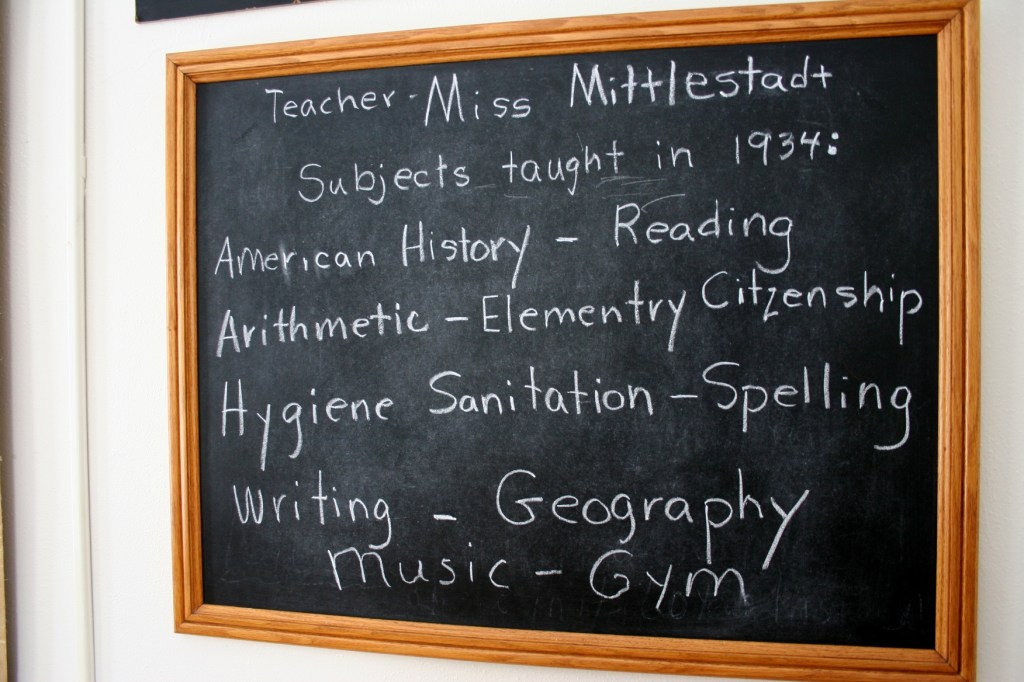 Teacher - Miss Mittlestadt
Subjects taught in 1934:
American History - Reading
Arithmetic - Elementry Citzenship
Hygiene Sanitation - Spelling
Writing - Geography
Music - Gym